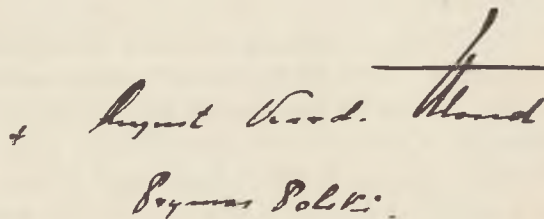 + August Kard. Hlond
Prymas Polski.